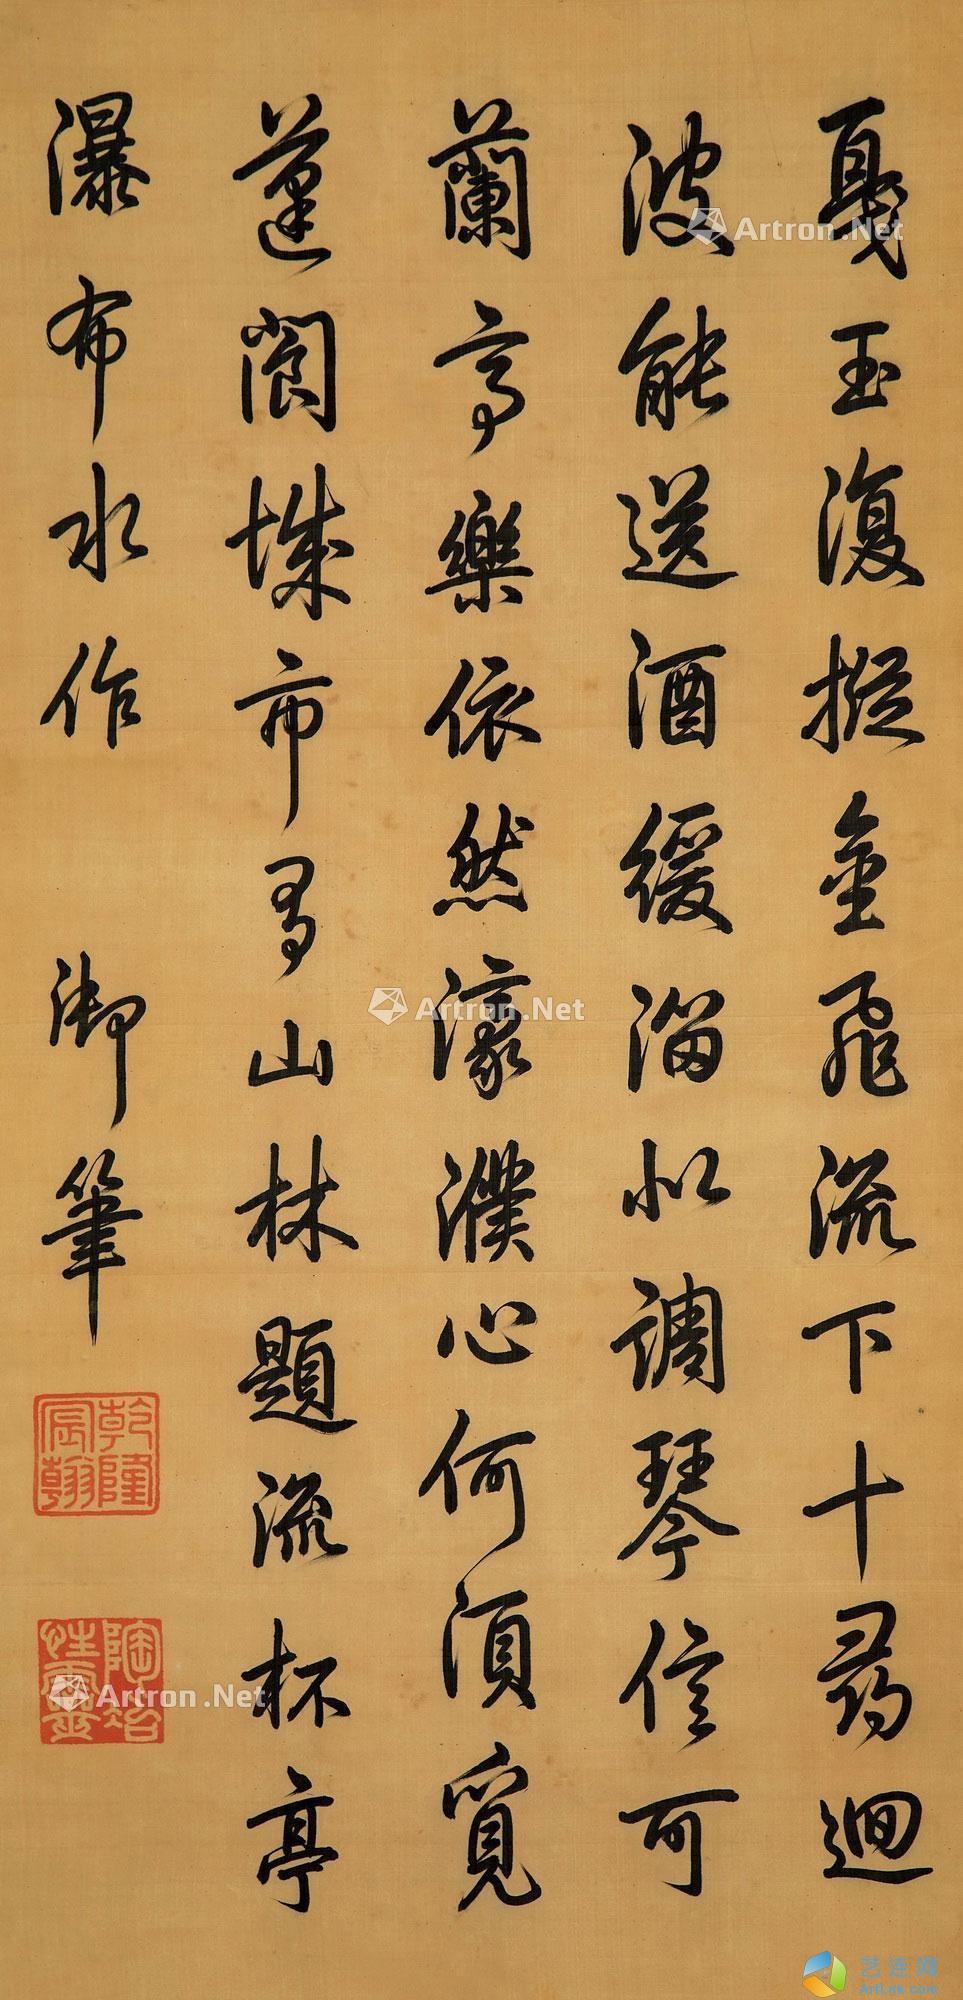 戛玉復摐金飛流下十尋迴
波能送酒緩溜似調琴信可
蘭亭樂依然濠濮心何須覓
蓬閬城市有山林題流杯亭
瀑布水作 御筆
乾隆宸翰
陶冶性靈
Artron.Net
Artron.Net
Artron.Net
艺连网
ArtLnk.com